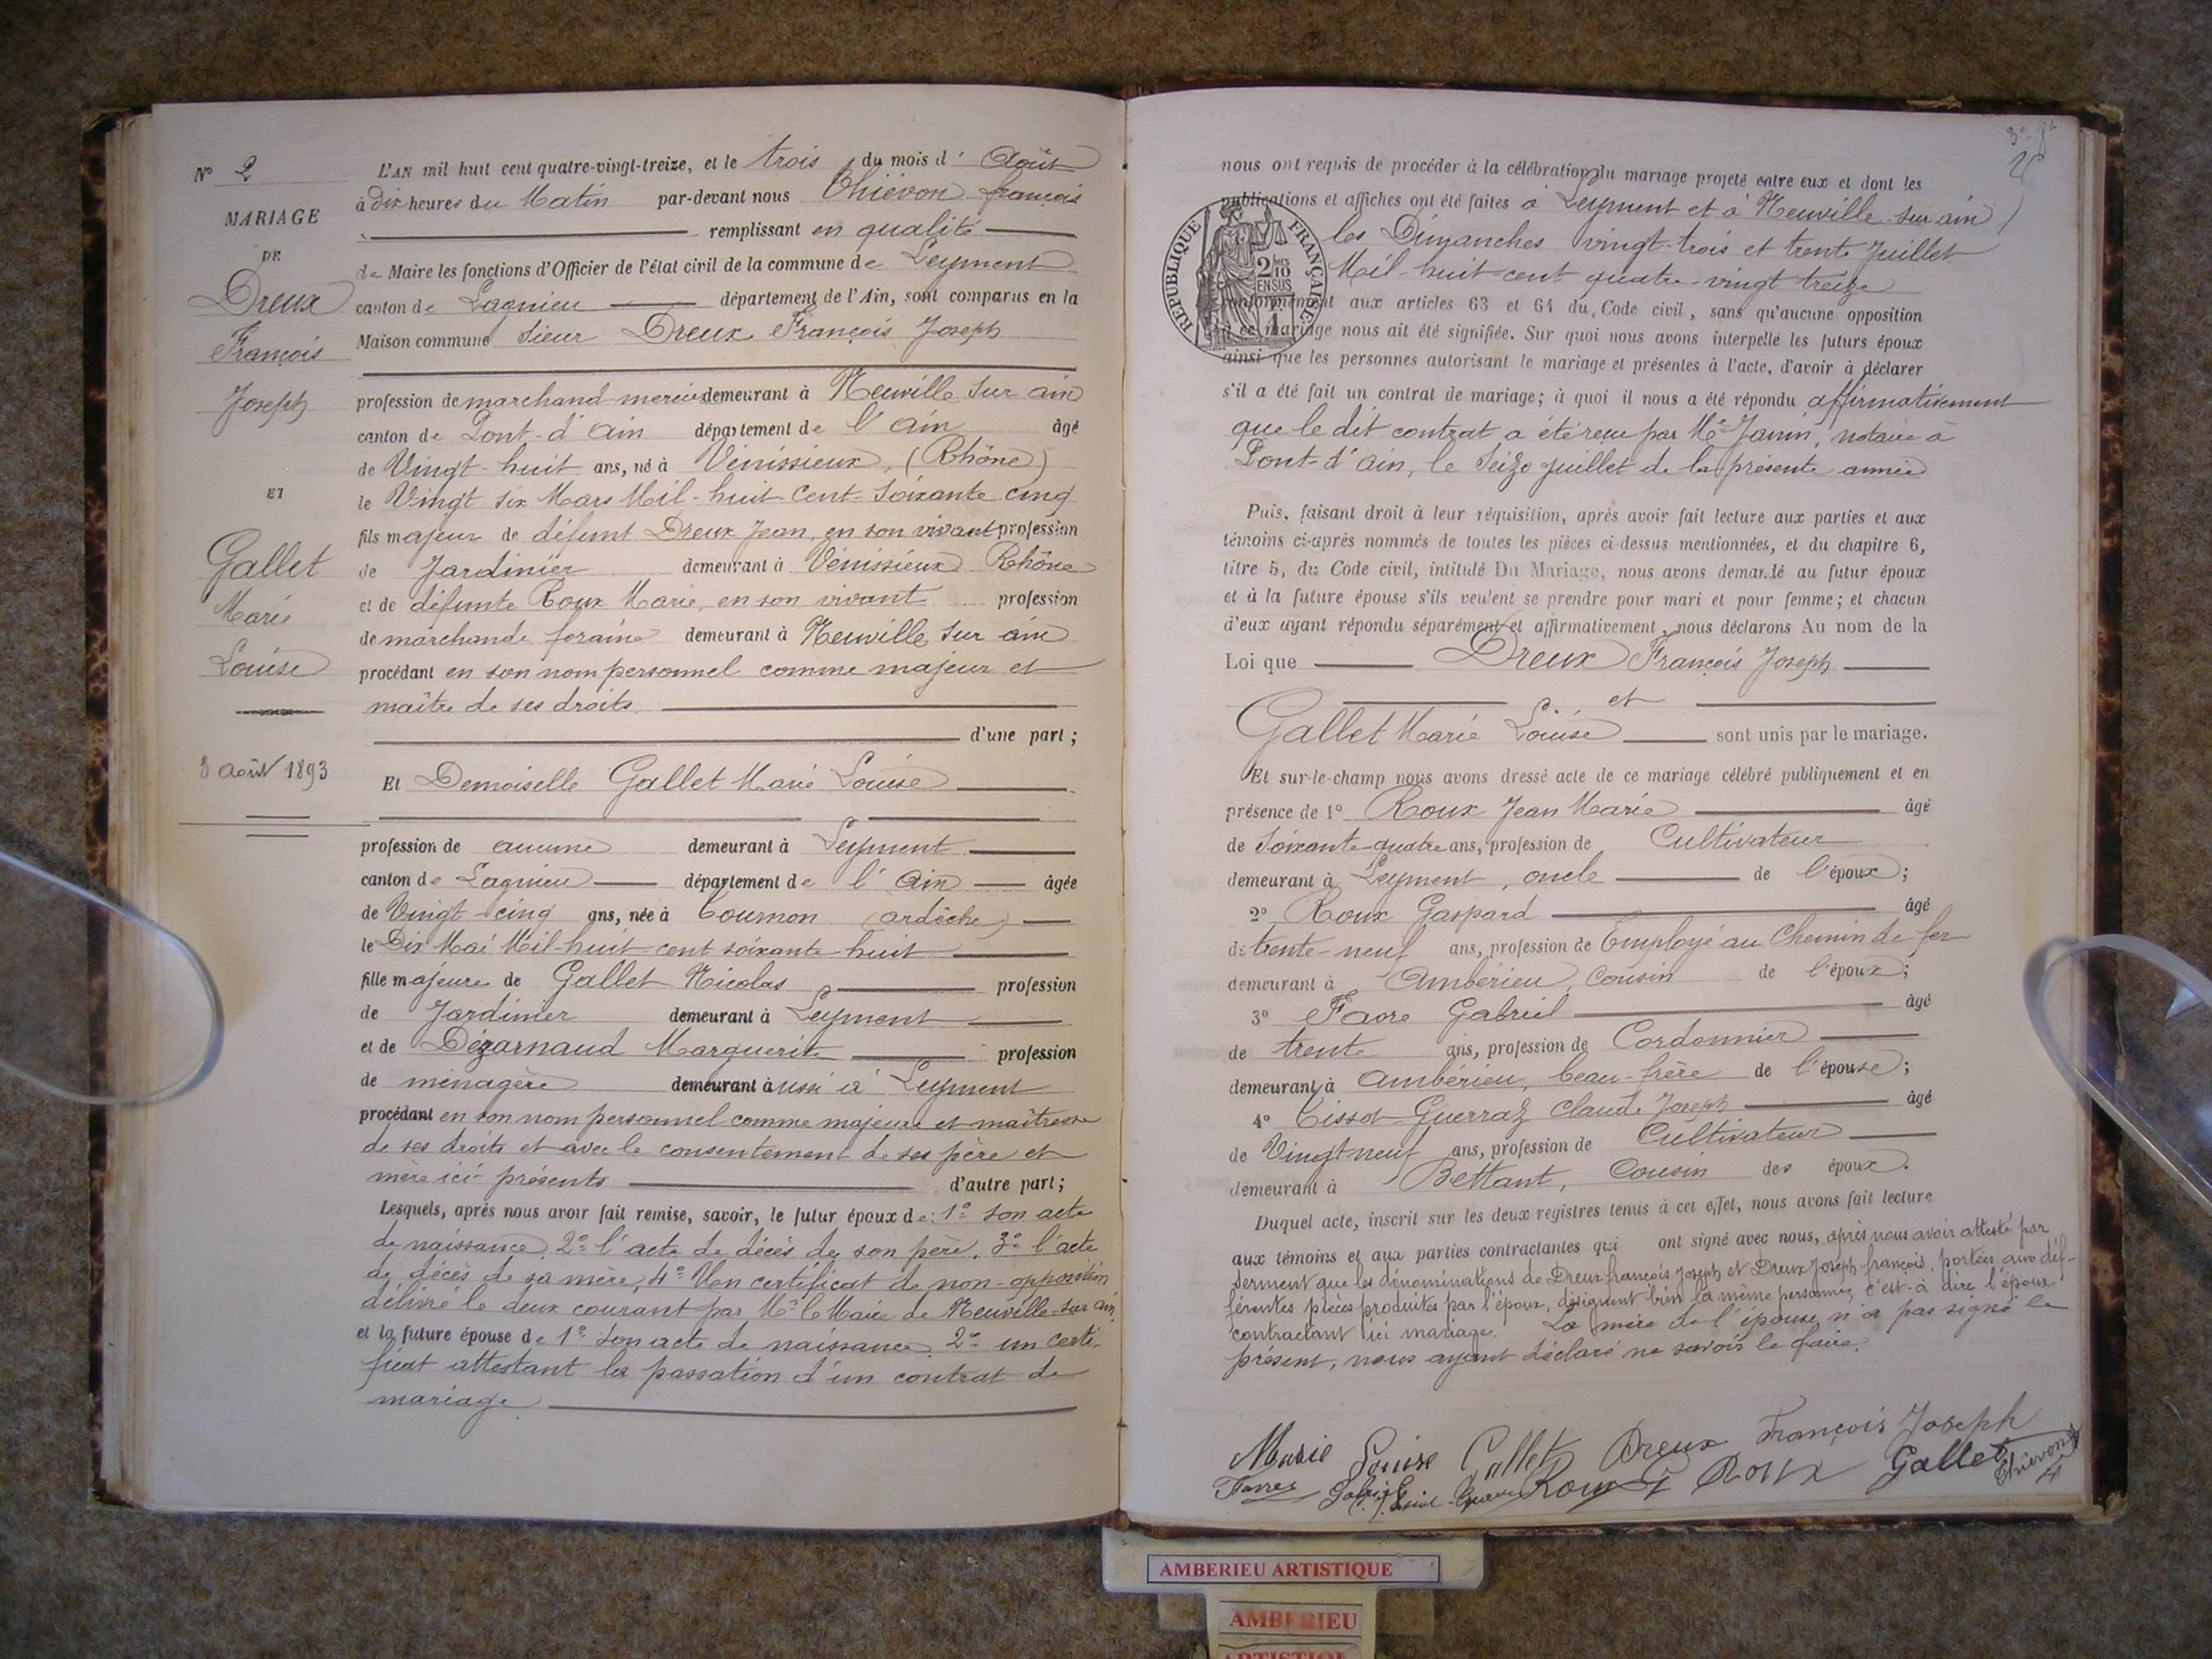 N° 2
MARIAGE
DE
Dreux
François
Joseph
ET
Gallet
Marie
Louise
3 Août 1893
L'AN mil huit cent quatre-vingt-treize, et le trois du mois d' Août
à dix heures du Matin par-devant nous Thiévon françois
remplissant en qualité
de Maire les fonctions d'Officier de l'état civil de la commune de Leyment
canton de Lagnieu département de l'Ain, sont comparus en la
Maison commune Sieur Dreux François Joseph
profession de marchand mercier demeurant à Neuville sur ain
canton de Pont-d'ain département de l'ain âgé
de Vingt-huit ans, né à Vénissieux, (Rhône)
le Vingt six Mars Mil-huit-Cent-Soixante cinq
fils majeur de défunt Dreux Jean, en son vivant profession
de Jardinier demeurant à Vénissieux Rhône
et de défunte Roux Marie, en son vivant profession
de marchande foraine demeurant à Neuville sur ain
procédant en son nom personnel comme majeur et
maître de ses droits.
d'une part ;
Et Demoiselle Gallet Marie Louise
profession de aucune demeurant à Leyment
canton de Lagnieu département de l'Ain âgée
de Vingt-cinq ans, née à Tournon (ardèche)
le Dix Mai Mil-huit-cent soixante-huit
fille majeure de Gallet Nicolas profession
de Jardinier demeurant à Leyment
et de Dézarnaud Marguerite profession
de ménagère demeurant aussi à Leyment
procédant en son nom personnel comme majeure et maîtresse
de ses droits et avec le consentement de ses père et
mère ici présents d'autre part ;
Lesquels, après nous avoir fait remise, savoir, le futur époux de : 1° son acte
de naissance, 2° l'acte de décès de son père, 3° l'acte
de décès de sa mère, 4° Un certificat de non-opposition
délivré le deux courant par Mr le Maire de Neuville-sur ain
et la future épouse de 1° son acte de naissance 2° un certi-
ficat attestant la passation d'un contrat de
mariage
nous ont requis de procéder à la célébration du mariage projeté entre eux et dont les
publications et affiches ont été faites à Leyment et à Neuville-sur ain
les Dimanches vingt-trois et trente Juillet
Mil-huit-cent quatre-vingt treize
conformément aux articles 63 et 64 du Code civil, sans qu'aucune opposition
à ce mariage nous ait été signifiée. Sur quoi nous avons interpellé les futurs époux
ainsi que les personnes autorisant le mariage et présentes à l'acte, d'avoir à déclarer
s'il a été fait un contrat de mariage ; à quoi il nous a été répondu affirmativement
que le dit contrat a été reçu par Me Janin, notaire à
Pont-d'ain, le Seize juillet de la présente année
RÉPUBLIQUE FRANÇAISE
2/10 EN SUS
Puis, faisant droit à leur réquisition, après avoir fait lecture aux parties et aux
témoins ci-après nommés de toutes les pièces ci-dessus mentionnées, et du chapitre 6,
titre 5, du Code civil, intitulé Du Mariage, nous avons demandé au futur époux
et à la future épouse s'ils veulent se prendre pour mari et pour femme ; et chacun
d'eux ayant répondu séparément et affirmativement, nous déclarons Au nom de la
Loi que Dreux François Joseph
et
Gallet Marie Louise sont unis par le mariage.
Et sur-le-champ nous avons dressé acte de ce mariage célébré publiquement et en
présence de 1° Roux Jean Marie âgé
de Soixante-quatre ans, profession de Cultivateur
demeurant à Leyment, oncle de l'époux ;
2° Roux Gaspard âgé
de trente-neuf ans, profession de Employé au Chemin de fer
demeurant à Ambérieu, cousin de l'époux ;
3° Favre Gabriel âgé
de trente ans, profession de Cordonnier
demeurant à Ambérieu, beau-frère de l'épouse ;
4° Tissot-Guerraz Claude Joseph âgé
de Vingt neuf ans, profession de Cultivateur
demeurant à Bettant, Cousin des époux.
Duquel acte, inscrit sur les deux registres tenus à cet effet, nous avons fait lecture
aux témoins et aux parties contractantes qui ont signé avec nous, après nous avoir attesté par
serment que les dénominations de Dreux françois Joseph et Dreux Joseph françois, portées aux dif-
férentes pièces produites par l'époux, désignent bien la même personne, c'est-à dire l'époux
contractant ici mariage. La mère de l'épouse n'a pas signé le
présent, nous ayant déclaré ne savoir le faire.
Marie Louise Gallet Dreux François Joseph
Favre Gabriel Roux G Roux Gallet Thiévon
AMBERIEU ARTISTIQUE
AMBERIEU
ARTISTIQUE